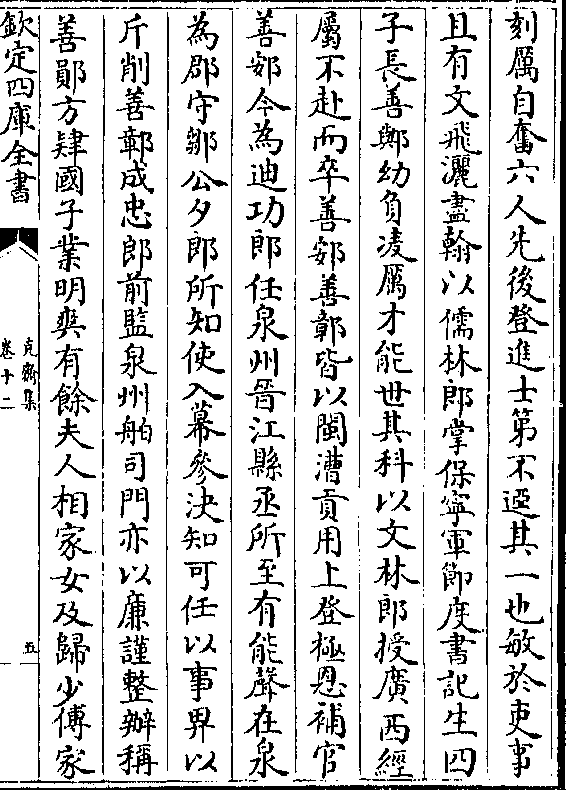 刻厲自奮六人先後登進士第不迓其一也敏於吏事
且有文飛灑盡翰以儒林郎掌保寧軍節度書記生四
子長善鄊幼負凌厲才能世其科以文林郎授廣西經
屬不赴而卒善鄈善鄣皆以閩漕貢用上登極恩補官
善鄈今為迪功郎任泉州晉江縣丞所至有能聲在泉
為郡守鄒公夕郎所知使入幕參決知可任以事畀以
斤削善鄣成忠郎前監泉州舶司門亦以廉謹整辦稱
善鄖方肄國子業明爽有餘夫人相家女及歸少傅家
欽定四庫全書
克齋集
卷十二
五